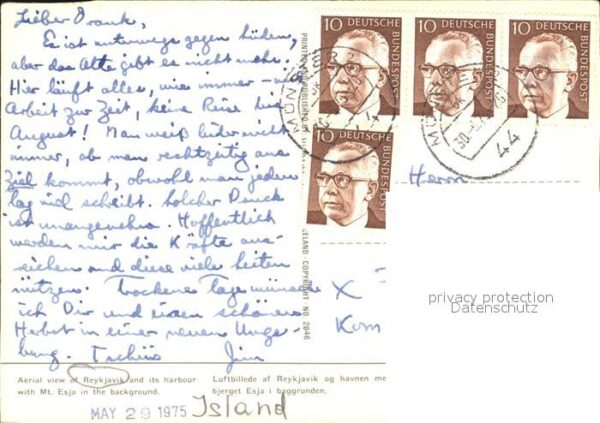 Lieber Frank,
Es ist unterwegs gegen Süden,
aber das Alte gibt es nicht mehr.
Hier läuft alles, wie immer –
Arbeit zur Zeit, keine Reise bis
August! Man weiß leider nicht
immer, ob man rechtzeitig ans
Ziel kommt, obwohl man jeden
Tag viel schreibt. Solcher Druck
ist unangenehm. Hoffentlich
werden mir die Kräfte aus-
reichen und diese viele
nützen. Trockene Tage wünsche
ich Dir und einen schönen
Herbst in einer neuen Umge-
bung. Tschüss Jim
PRINTED
ICELAND COPYRIGHT NO 2846
10 DEUTSCHE BUNDESPOST
10 DEUTSCHE BUNDESPOST
10 DEUTSCHE BUNDESPOST
10 DEUTSCHE BUNDESPOST
44
MÜNSTER
44
Herrn
X
Kom
privacy protection
Datenschutz
Aerial view of Reykjavik and its harbour
with Mt. Esja in the background.
Luftbillede af Reykjavik og havnen me
bjerget Esja i baggrunden.
MAY 29 1975
Island